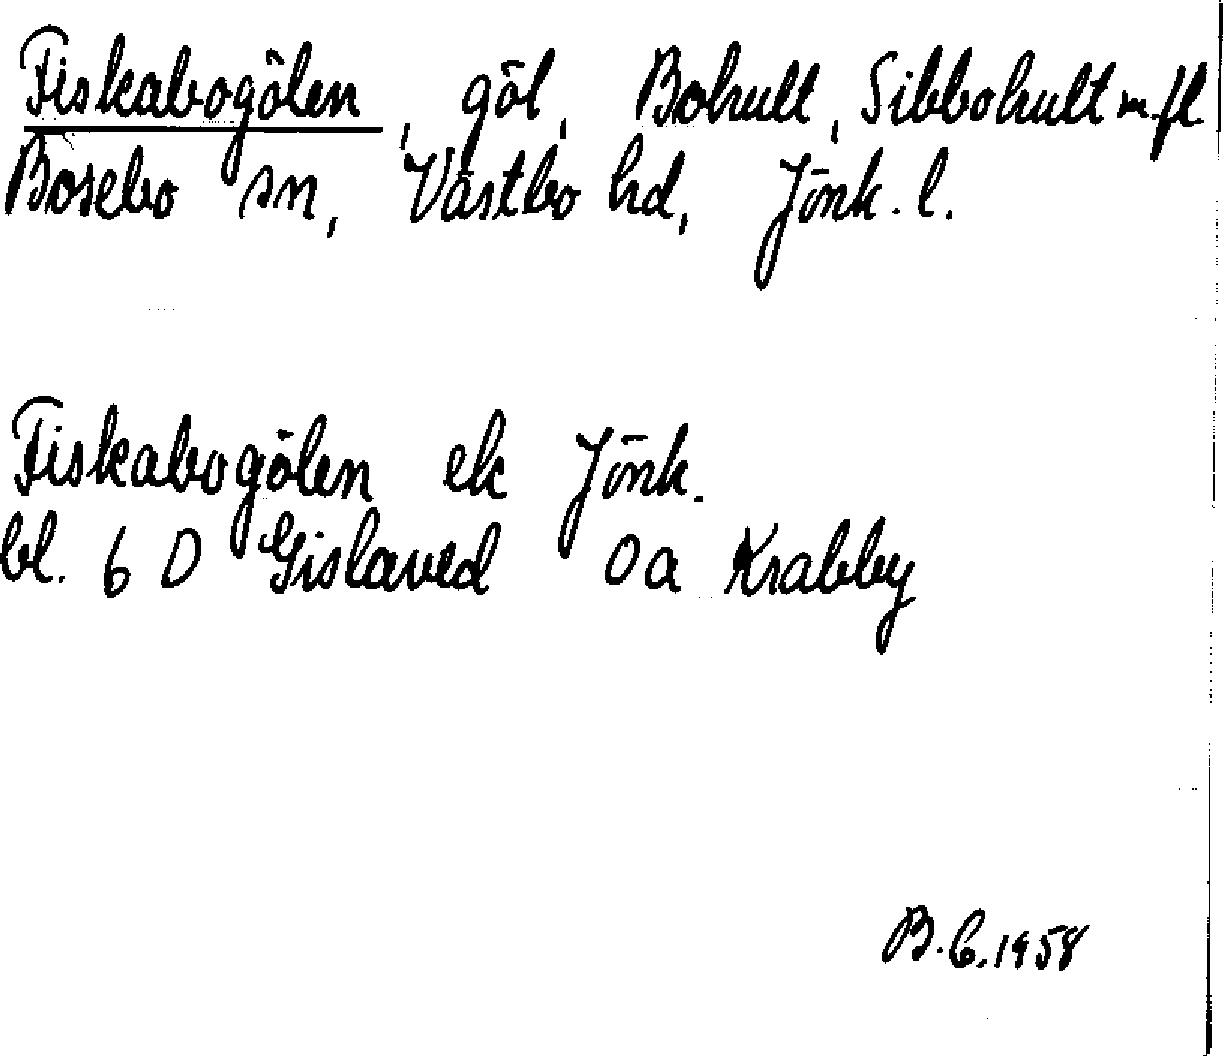 Fiskabogölen, göl, Bohult, Sibbohult m.fl
Bosebo sn, Västbo hd, Jönk. l.
Fiskabogölen ek Jönk.
bl. 6 D Gislaved 0a Krabby
B.C. 1958